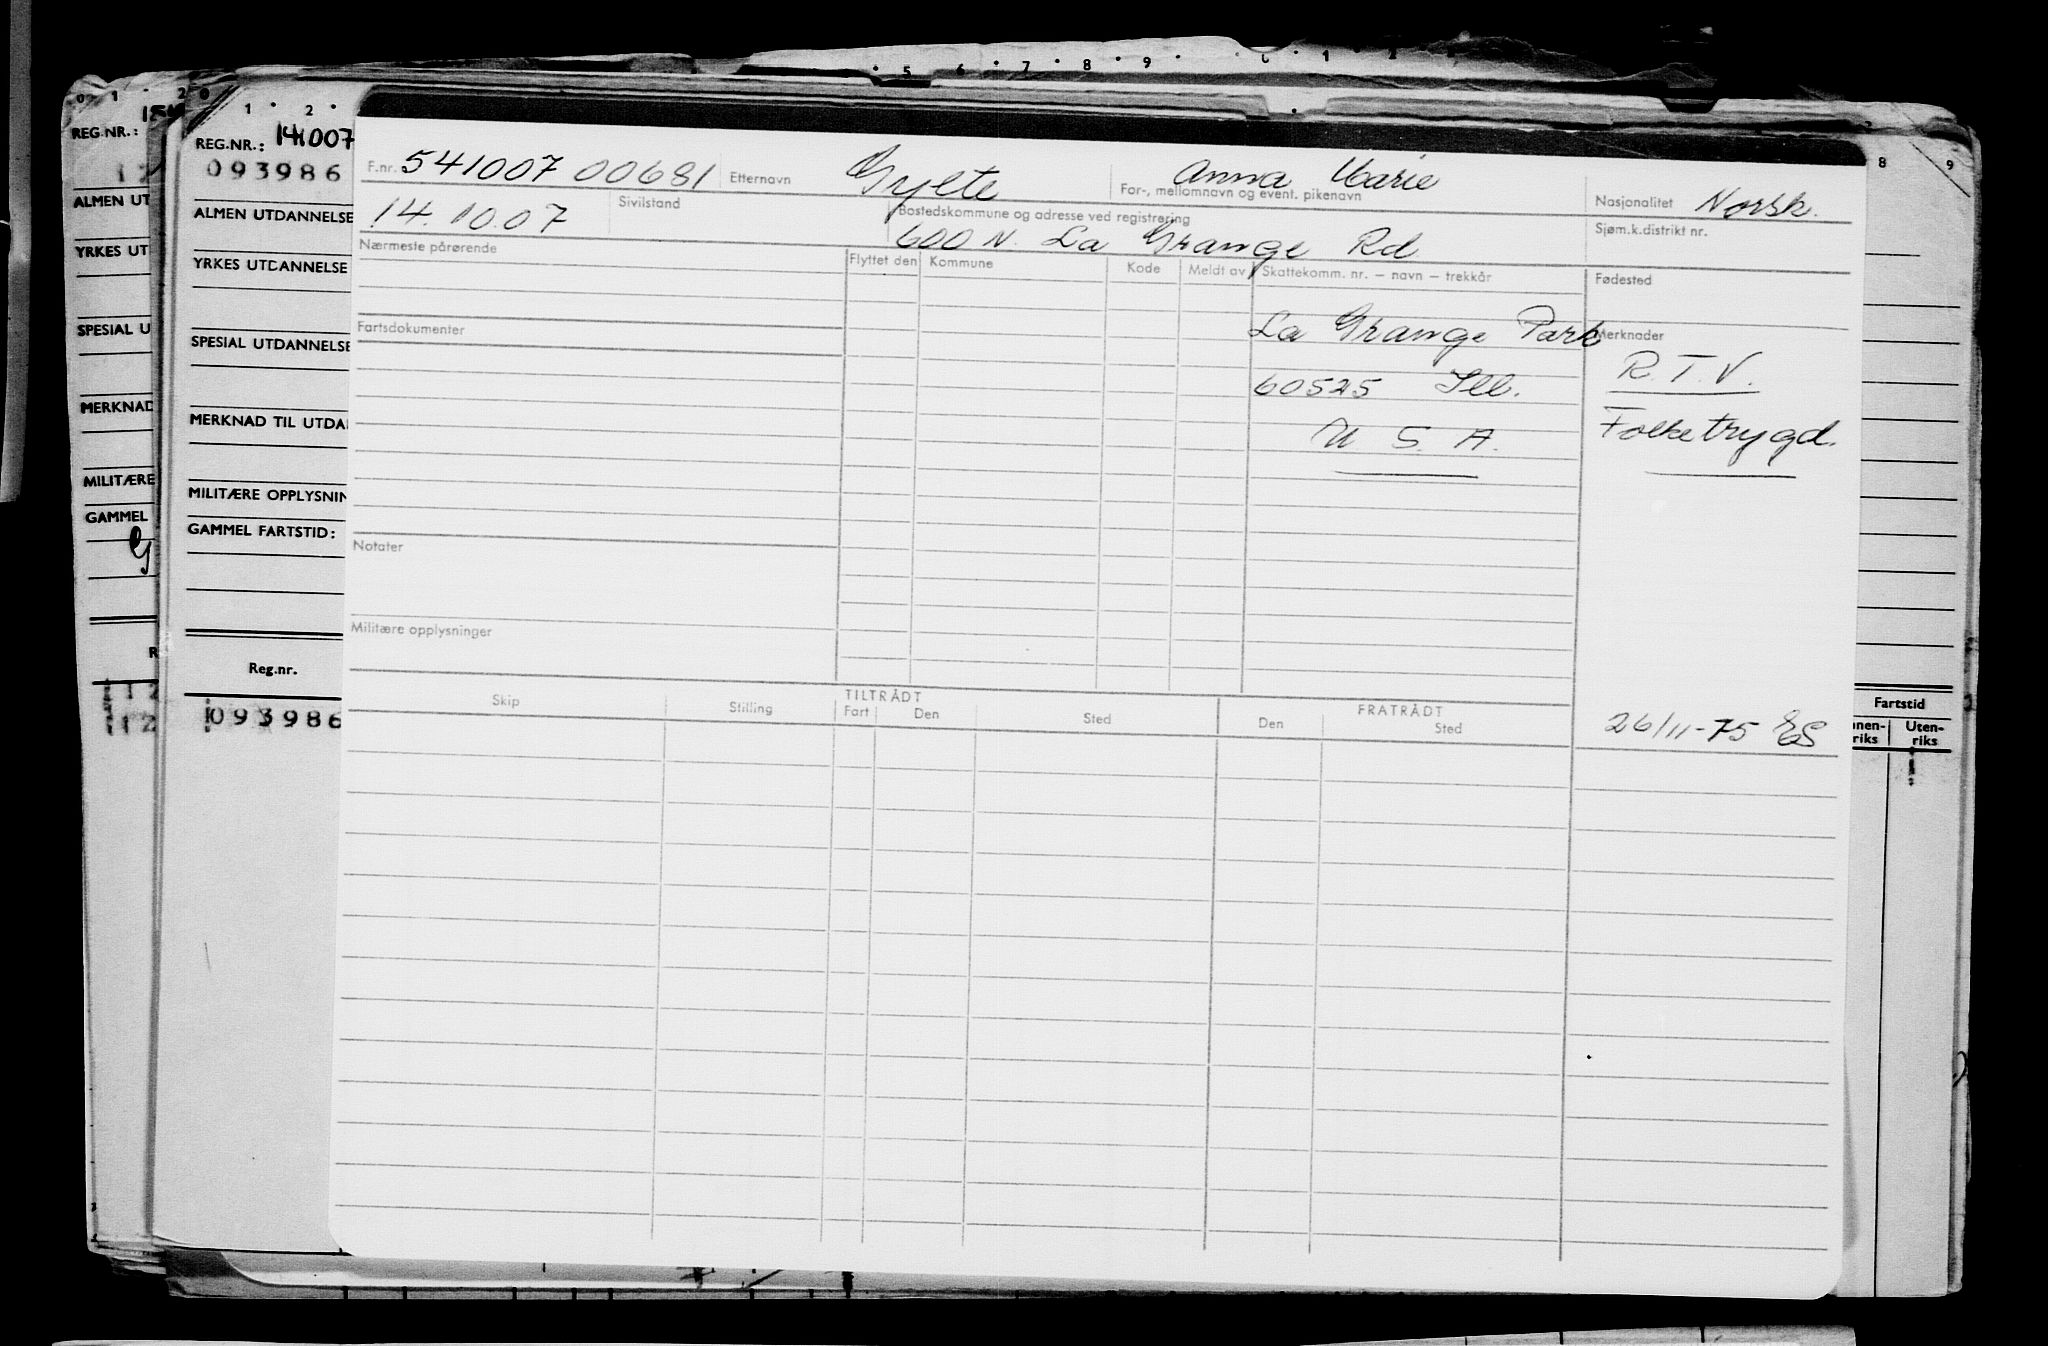 5 6 7 8 9
0 1 2 0
REG.NR.:
ALMEN UT
YRKES UT
SPESIAL U
MERKNAD
MILITÆRE
GAMMEL
1 2
REG.NR.: 141007
093986
ALMEN UTDANNELSE
YRKES UTDANNELSE
SPESIAL UTDANNELSE
MERKNAD TIL UTDA
MILITÆRE OPPLYSNIN
GAMMEL FARTSTID:
Reg.nr.
093986
F.nr. 541007 00681 Etternavn Gylte Anna Marie
For-, mellomnavn og event. pikenavn
Nasjonalitet Norsk.
14.10.07 Sivilstand Bostedskommune og adresse ved registrering
600 N. La Grange Rd
Sjøm.k.distrikt nr.
Nærmeste pårørende Flyttet den Kommune Kode Meldt av Skattekomm. nr. – navn – trekkår Fødested
Fartsdokumenter La Grange Park Merknader
60525 Ill. R.T.V.
U. S. A. Folketrygd.
Notater
Militære opplysninger
TILTRÅDT FRATRÅDT
Skip Stilling Fart Den Sted Den Sted
26/11-75 ES
8 9
Fartstid
nen-riks Uten-riks